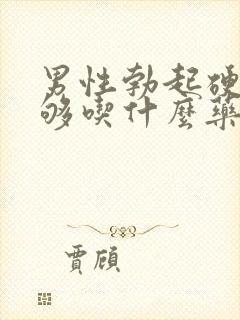 男性勃起硬
够喫什麼藥
賈顧